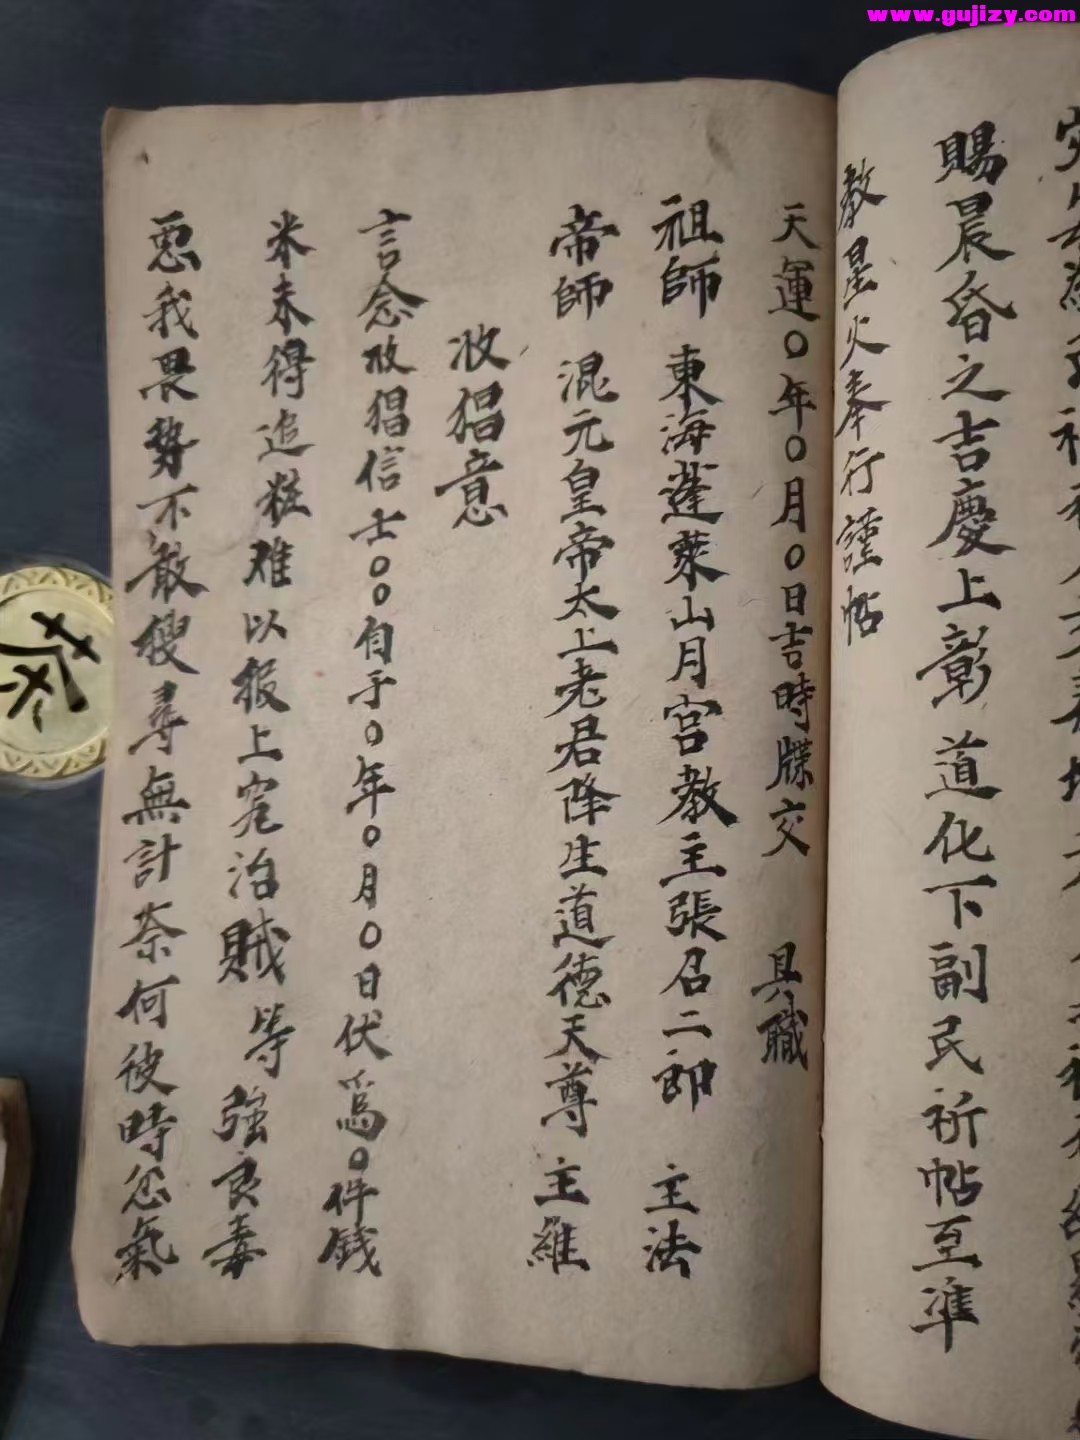 www.gujizy.com
賜晨昏之吉慶上彰道化下副民祈帖至準
教星火奉行謹帖
天運〇年〇月〇日吉時牒交 具職
祖師 東海蓬萊山月宮教主張召二郎 主法
帝師 混元皇帝太上老君降生道德天尊 主維
收猖意
言念收猖信士〇〇自于〇年〇月〇日伏爲〇件錢
米未得追粧难以报上宪治賊等強良毒
恶我畏势不敢搜尋無計奈何彼時忿氣